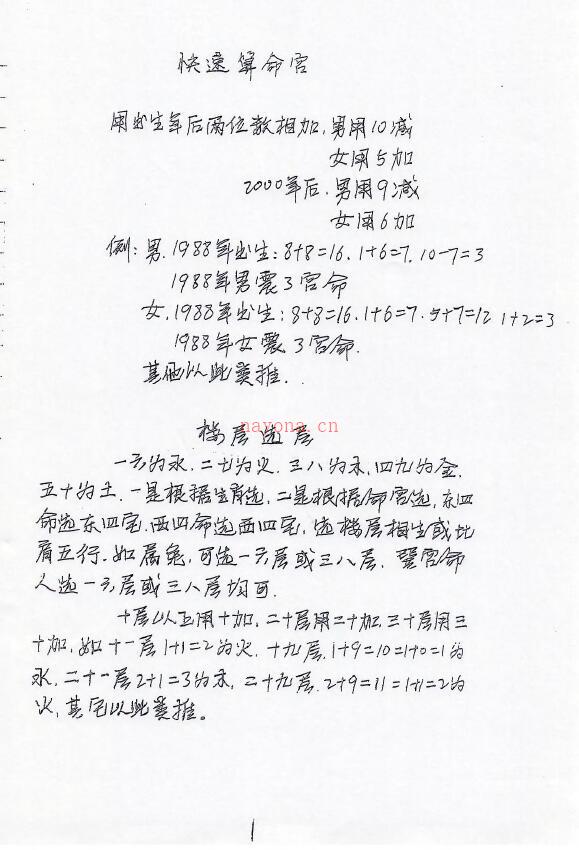 快速算命宫
用出生年后两位数相加,男用10减
女用5加
2000年后.男用9减
女用6加
例:男.1988年出生:8+8=16.1+6=7.10-7=3
1988年男震3宫命
女.1988年出生:8+8=16.1+6=7.5+7=12 1+2=3
1988年女震3宫命.
其他以此类推..
楼层选层
nayona.cn
一六为水.二七为火.三八为木.四九为金.
五十为土.一是根据生肖选,二是根据命宫选,东四
命选东四宅.西四命选西四宅,选楼层相生或比
肩五行.如属兔,可选一六层或三八层.震宫命
人选一六层或三八层均可.
十层以上用十加,二十层用二十加,三十层用三
十加,如十一层1+1=2为火.十九层.1+9=10=1+0=1为
水.二十一层2+1=3为木,二十九层.2+9=11=1+1=2为
火,其它以此类推。
1